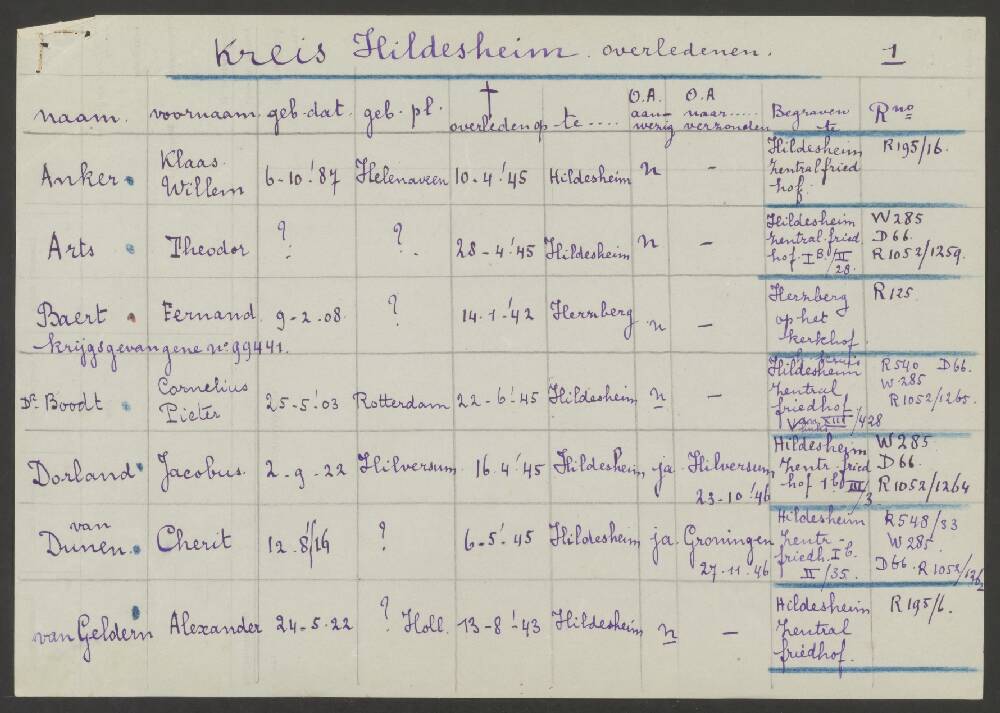 Kreis Hildesheim. overledenen. 1
naam. voornaam. geb-dat. geb. pl. † overleden op te..... O.A. aan-wezig O.A naar..... verzonden Begraven te R no
Anker. Klaas. Willem 6-10-'87 Helenaveen 10-4-'45 Hildesheim n - Hildesheim zentralfried hof. R195/16.
Arts Theodor ? ? 28-4-'45 Hildesheim n - Hildesheim zentral.fried. hof. I B / II 28. W285 D66. R1052/1259.
Baert Fernand. 9-2-08. ? 14-1-'42 Herzberg n - Herzberg op het kerkhof. R125.
krijgsgevangene no 99441.
De Boodt Cornelius Pieter 25-5-'03 Rotterdam 22-6-'45 Hildesheim n - Hildesheim zentral friedhof XIII /428 R540 D66. W.285 R1052/1265.
Dorland Jacobus. 2-9-22 Hilversum. 16.4-'45 Hildesheim ja. Hilversum 23-10-'46 Hildesheim zentr. fried hof 1 b III/3 W285. D66. R1052/1264
van Dunen. Cherit 12.8/'14 ? 6-5-'45 Hildesheim ja. Groningen 27-11-46 Hildesheim zentr- friedh. I b. II/35. R548/33 W285. D66. R1052/1262
van Geldern Alexander 24-5-22 ? Holl. 13-8-'43 Hildesheim n - Hildesheim zentral friedhof. R195/6.